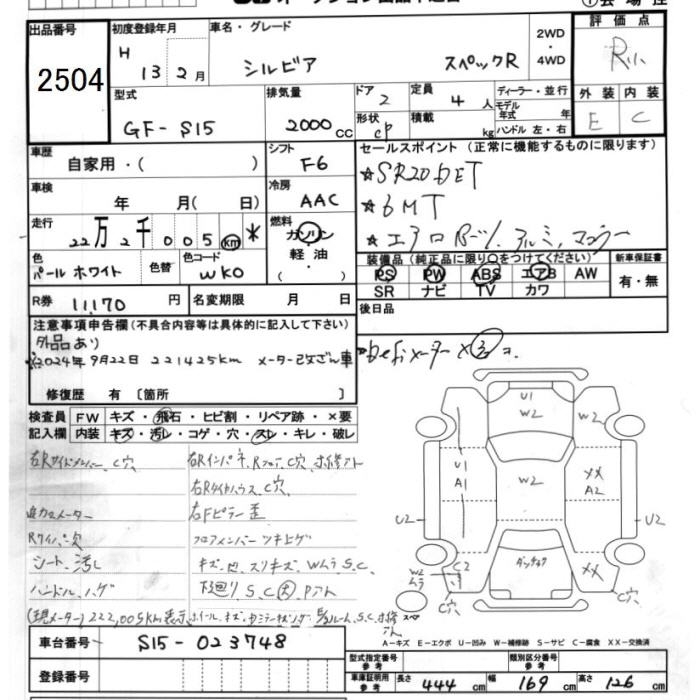 出品番号
2504
初度登録年月
H 13 2月
車名・グレード
シルビア スペックR
2WD
・
4WD
評価点
R小
型式
GF-S15
排気量
2000cc
ドア
2
形状
cp
定員
4人
積載
kg
ディーラー・並行
モデル
年式 年
ハンドル 左・右
外装 内装
E C
車歴
自家用・( )
シフト
F6
セールスポイント (正常に機能するものに限ります)
☆SR20DET
☆6MT
☆エアロバーツ、アルミ、マフラー
車検
年 月( 日)
冷房
AAC
走行
22万2千005km *
燃料
ガソリン
・
軽油
・
( )
色
パールホワイト
色替
色コード
WK0
装備品 (純正品に限り○をつけてください)
PS PW ABS エアB AW
SR ナビ TV カワ
新車保証書
有・無
R券
11,170円
名変期限 月 日
後日品
注意事項申告欄 (不具合内容等は具体的に記入して下さい)
外品あり
※2024年9月22日 221425km メーター改ざん車
defiメーター×3コ
修復歴 有 〔箇所 〕
検査員 FW キズ・飛石・ヒビ割・リペア跡・×要
記入欄 内装 キズ・汚レ・コゲ・穴・スレ・キレ・破レ
右Rサイドメンバー、C穴
右Rインパネ、Rフロア、C穴、ホ修アト
右Rタイヤハウス、C穴
社外メーター
右Fピラー歪
Rワイパー欠
フロアメンバーツキ上ゲ
シート、汚レ
キズ、凹、スリキズ、Wムラ、S.C
ハンドル、ハゲ
下廻り、S.C(大)、Pアト
(現メーター) 222,005km表示
U1
W2
W2
U1
A1
W2
××
A2
U2
U2
W2
ムラ
C2
C穴
ダッチョク
××
C穴
スペア
A-キズ E-エクボ U-凹み W-補修跡 S-サビ C-腐食 XX-交換済
車台番号
S15-023748
登録番号
型式指定番号
参考
類別区分番号
参考
車庫証明用
参考
長さ 444cm 幅 169cm 高さ 126cm